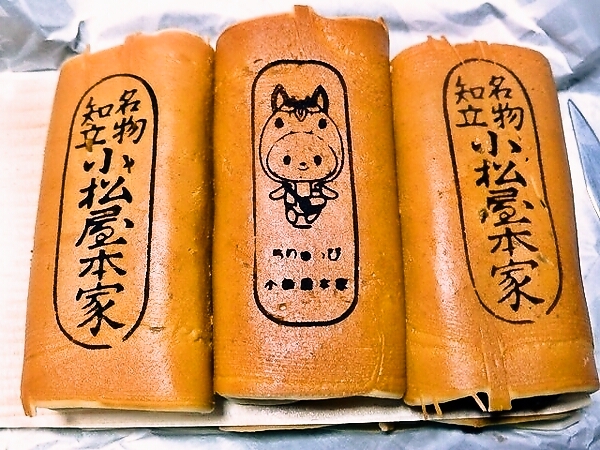 名物
知立
小松屋本家
ちりゅっぴ
小松屋本家
名物
知立
小松屋本家